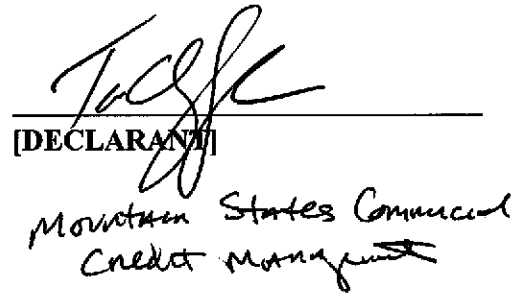 [DECLARANT]
Mountain States Commercial
Credit Management